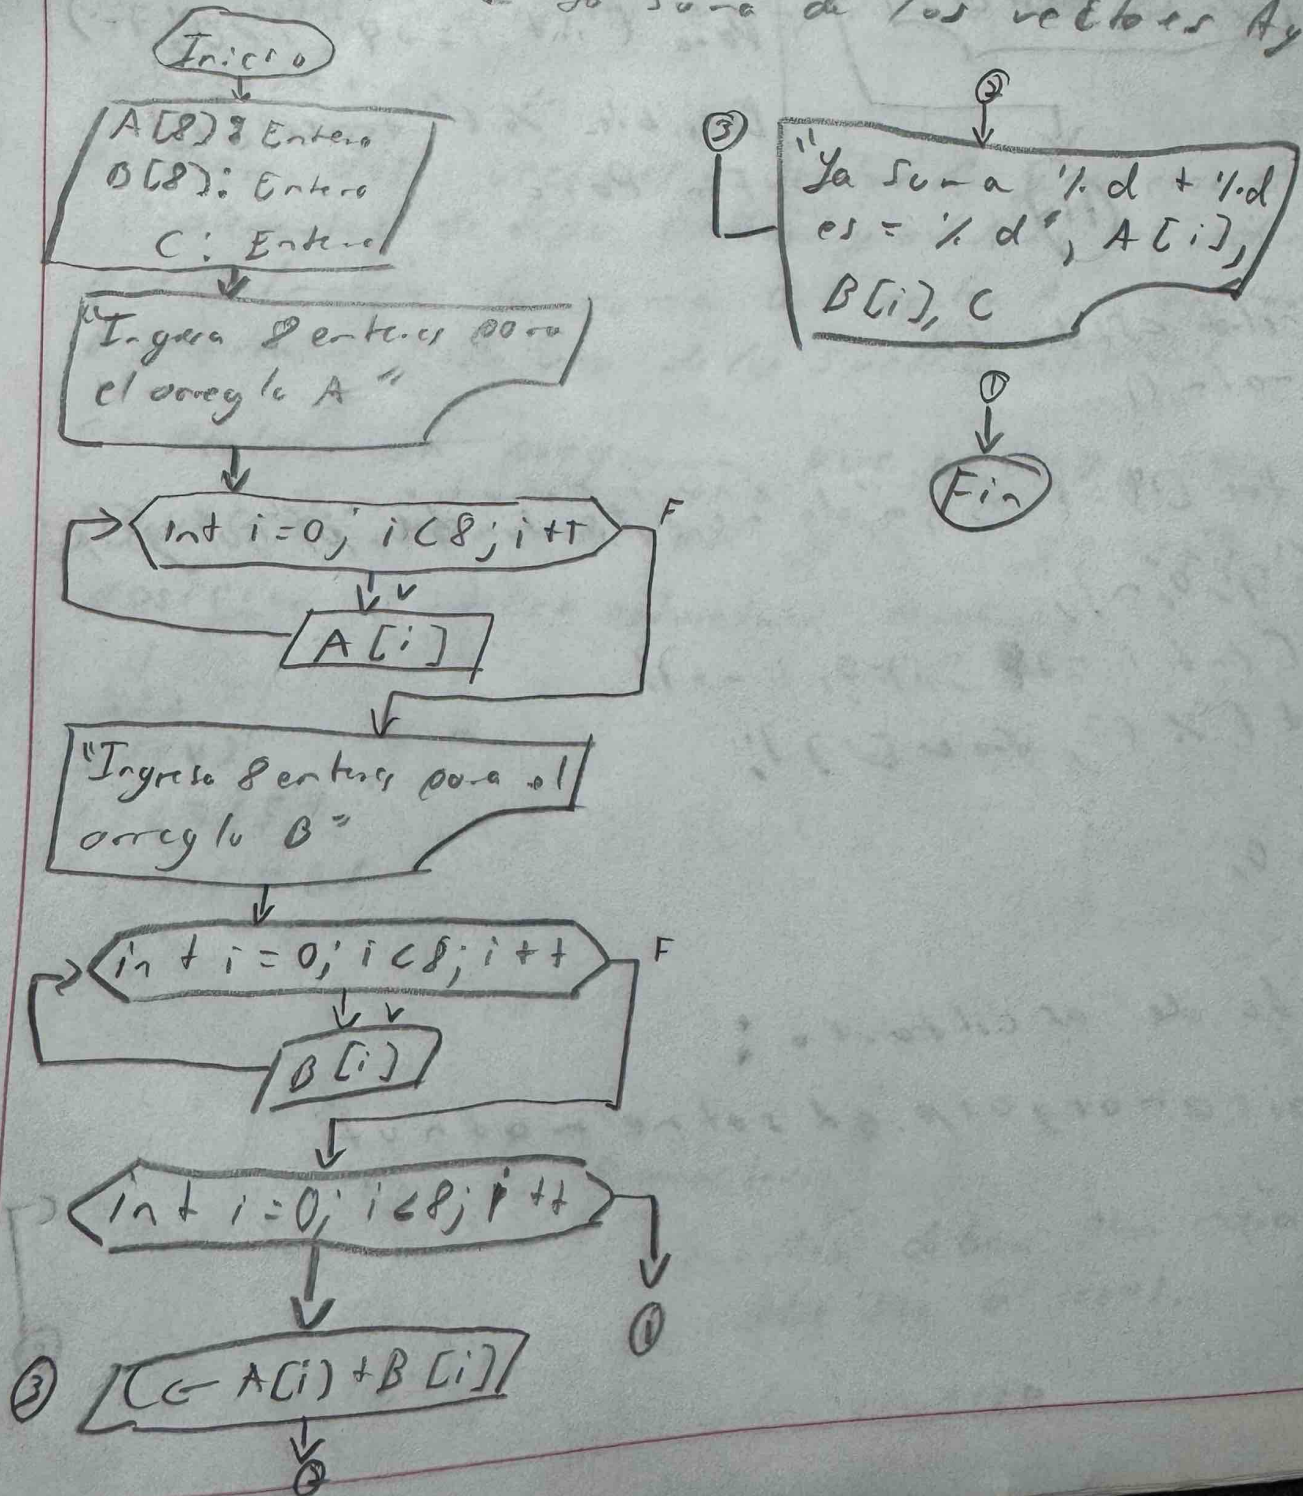 la suma de los vectores A y
Inicio
A[8]: Entero
B[8]: Entero
C: Entero
"Ingresa 8 enteros para
el arreglo A"
int i=0; i<8; i++
F
v
A[i]
"Ingresa 8 enteros para el
arreglo B"
int i=0; i<8; i++
F
v
B[i]
int i=0; i<8; i++
1
3
C← A[i]+B[i]
2
2
3
"La suma %d + %d
es = %d", A[i],
B[i], C
1
Fin